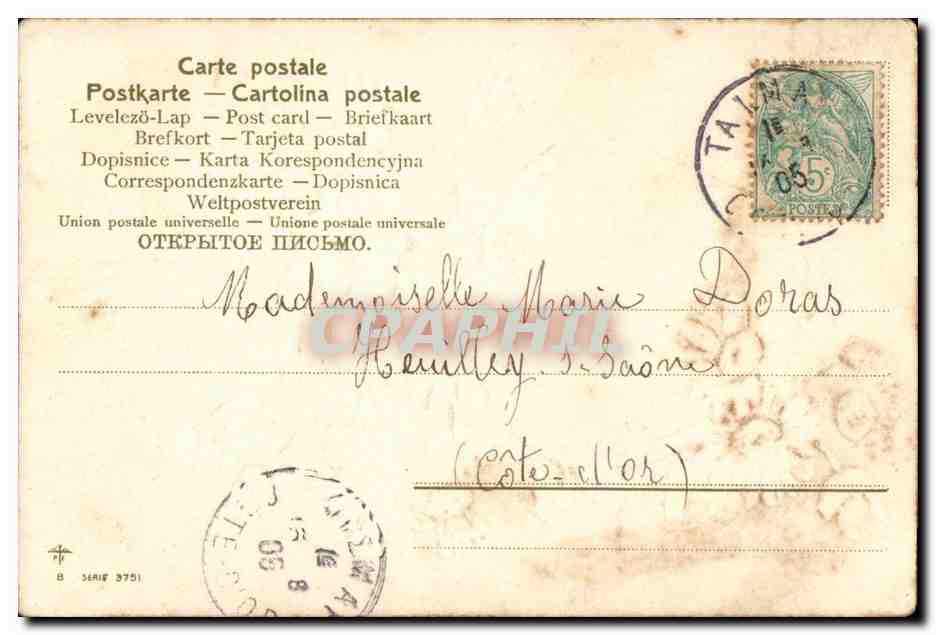 Carte postale
Postkarte — Cartolina postale
Levelező-Lap — Post card — Briefkaart
Brefkort — Tarjeta postal
Dopisnice — Karta Korespondencyjna
Correspondenzkarte — Dopisnica
Weltpostverein
Union postale universelle — Unione postale universale
ОТКРЫТОЕ ПИСЬМО.
TALMA
1E
05
5c
POSTES
Mademoiselle Marie Doras
CPAPHIL
Heuilley s. Saône
(Côte-d'or)
1E
8
05
B SERIE 3751